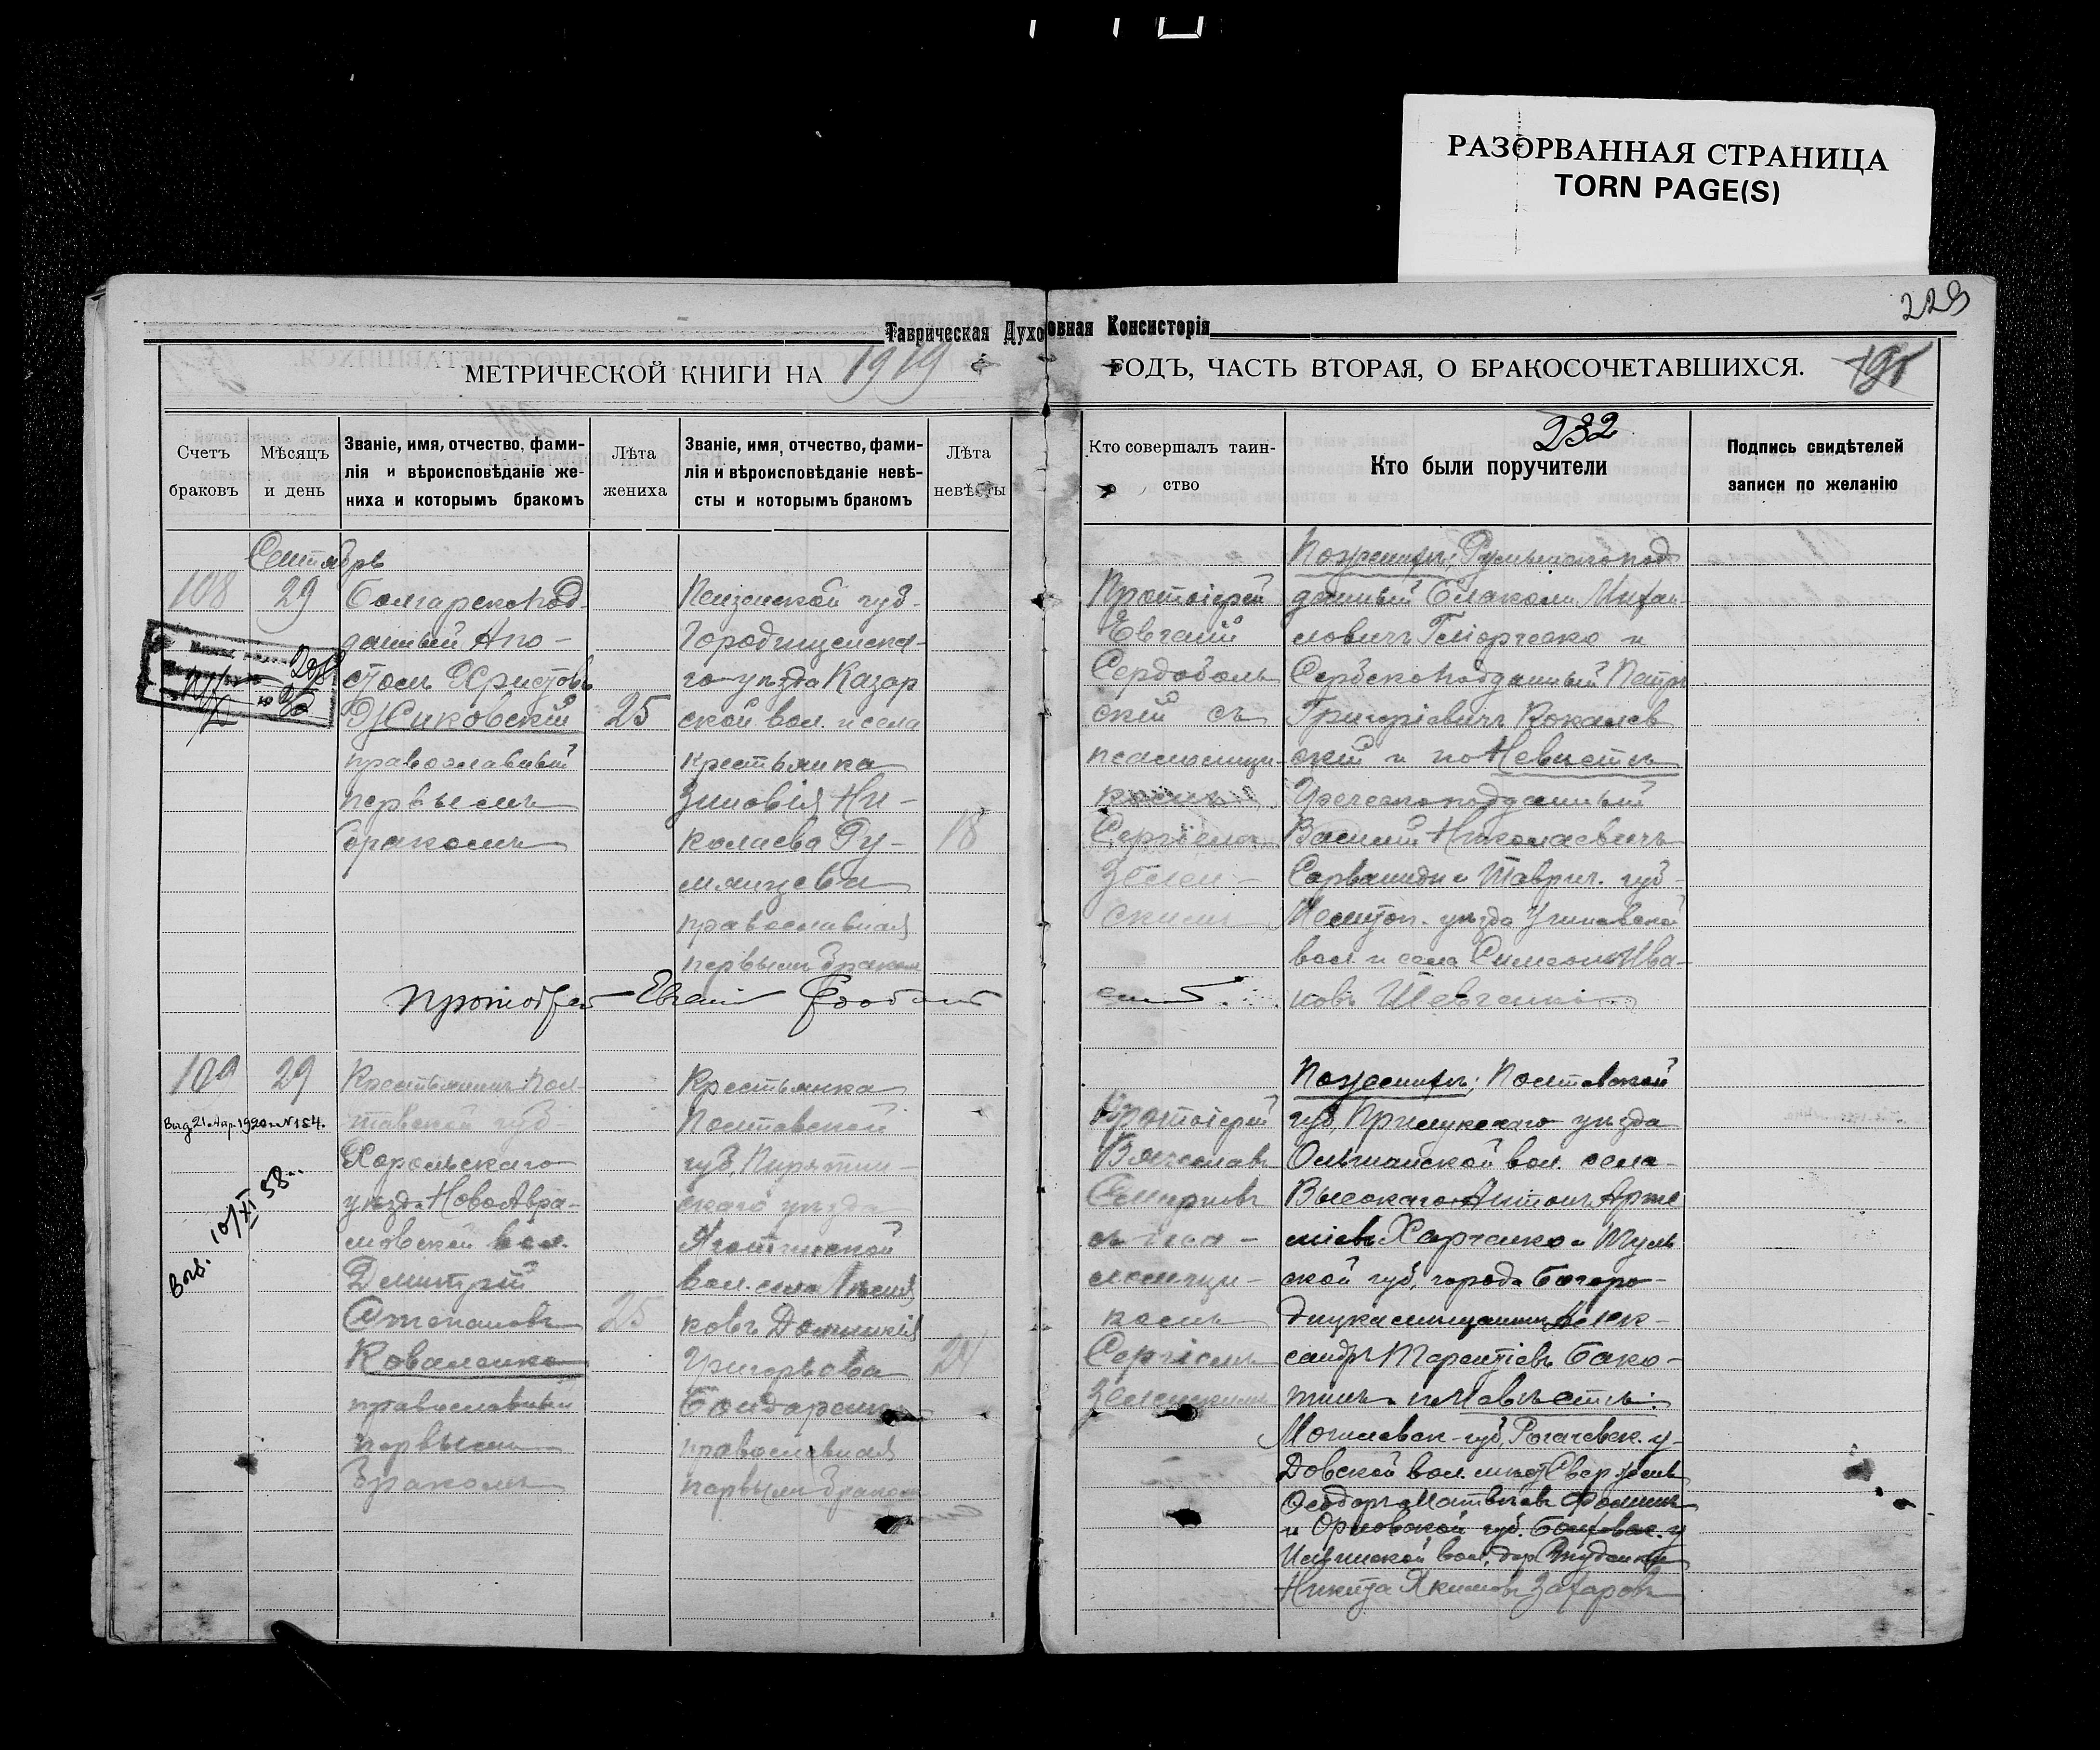 РАЗОРВАННАЯ СТРАНИЦА
TORN PAGE(S)
229
Таврическая Духовная Консисторія
МЕТРИЧЕСКОЙ КНИГИ НА 1919
ГОДЪ, ЧАСТЬ ВТОРАЯ, О БРАКОСОЧЕТАВШИХСЯ.
232
Счетъ браковъ
Мѣсяцъ и день
Званіе, имя, отчество, фами-
лія и вѣроисповѣданіе же-
ниха и которымъ бракомъ
Лѣта жениха
Званіе, имя, отчество, фами-
лія и вѣроисповѣданіе невѣ-
сты и которымъ бракомъ
Лѣта невѣсты
Кто совершалъ таин-
ство
Кто были поручители
Подпись свидѣтелей
записи по желанію
Сентябрь
108
29
Болгарскопод-
данный Апо-
столъ Христовъ
Жиковскій
православный
первымъ
бракомъ
25
Пензенской губ.
Городищенска-
го уѣзда Казар
ской вол. и села
крестьянка
Зиновія Ни-
колаева Ру-
мянцева
православная
первымъ бракомъ
18
Протоіерей
Евгеній
Сердоболь
скій съ
псаломщи-
комъ
Сергіемъ
Зелен-
скимъ
По женихѣ: Румынскопод
данный
Михаи-
ловичъ и
Сербскоподданный Петръ
Григоріевичъ
скій и по Невѣстѣ
Греческоподданный
Василій Николаевичъ
и Таврич. губ.
Мелитоп. уѣзда
вол. и села Симеонъ Ива-
новъ Шевченко
Протоіерей Евгеній
109
29
Выд. 21 Апр. 1920 г. №154.
10/XI 58
Крестьянинъ Пол-
тавской губ.
Хорольскаго
уѣзда НовоАвра-
мовской вол.
Димитрій
Степановъ
Коваленко
православный
первымъ
бракомъ
25
Крестьянка
Полтавской
губ, Пирятин-
скаго уѣзда
Яготинской
вол. села
ковъ Домникія
Григорьева
Бондаренко
православная
первымъ бракомъ
21
Протоіерей
Вячеславъ
Смирновъ
съ пса-
ломщи-
комъ
Сергіемъ
Зеленскимъ
По женихѣ: Полтавской
губ, Прилукскаго уѣзда
Ольшанской вол. села
Высокаго Антонъ Арте
міевъ Харченко и Туль
ской губ, города Богоро-
дицка мѣщанинъ Алек-
сандръ Терентіевъ Бако-
тинъ и по Невѣстѣ:
Могилевск. губ, Рогачевск. у.
Довской вол. мѣст. Свержень
Ѳеодоръ Матвѣевъ Фоминъ
и Орловской губ. Болховск. у
вол, дер.
Никита Якимовъ Захаровъ